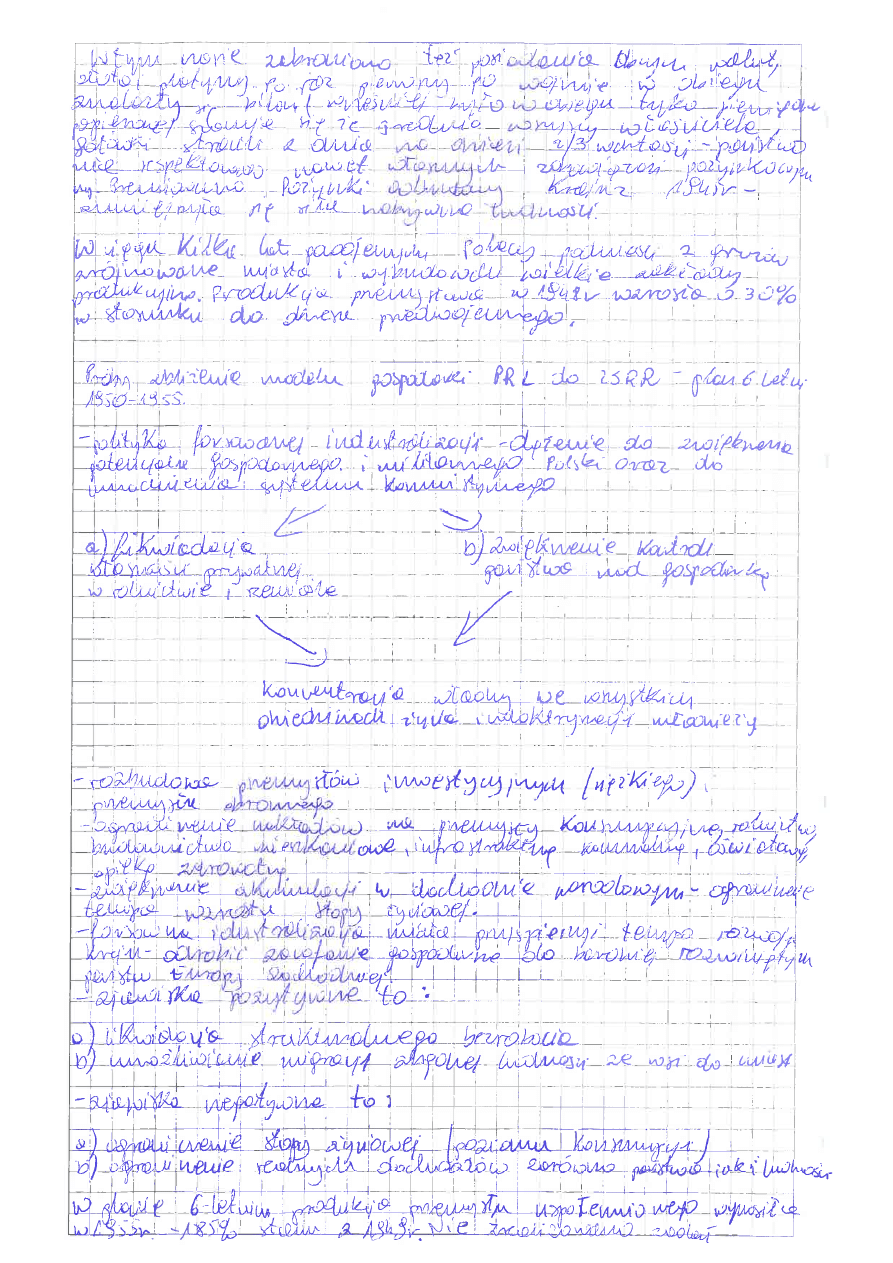 W tym roku zabroniono też posiadania obcym walut,
złota i platyny po raz pierwszy po wojnie w obiegu
znalazły się bilon (wcześniej było w obiegu tylko pieniądze
papierowe) szacuje się że średnio wszyscy właściciele
gotówki stracili z dnia na dzień 2/3 wartości - państwo
nie respektowało nawet własnych zobowiązań pożyczkowych
np. Premiowana Pożyczki odbudowy Kraju z 194 r -
zmniejszyła się siła nabywcza ludności.
W ciągu kilku lat powojennych Polacy podnieśli z gruzów
zrujnowane miasta i wybudowali wielkie zakłady
produkcyjne. Produkcja przemysłowa w 1949r wzrosła o 30%
w stosunku do okresu przedwojennego.
Próby zbliżenie modelu gospodarki PRL do ZSRR - plan 6 letni
1950-1955.
- polityka forsowanej industrializacji - dążenie do zwiększenia
potencjału gospodarczego i militarnego Polski oraz do
umocnienia systemu komunistycznego
a) likwidacja
własności prywatnej
w rolnictwie i rzemiośle
b) zwiększenie kontroli
państwa nad gospodarką
koncentracja władzy we wszystkich
dziedzinach życia i indoktrynacji młodzieży
- rozbudowa przemysłów inwestycyjnych (ciężkiego) i
przemysłu obronnego
- ograniczenie nakładów na przemysły konsumpcyjne, rolnictwo,
budownictwo mieszkaniowe, infrastrukturę komunalną, oświatową,
opiekę zdrowotną
- zwiększenie akumulacji w dochodzie narodowym - ograniczenie
tempa wzrostu stopy życiowej.
- forsowna idustrializacja miała przyspieszyć tempo rozwoju
kraju - odrobić zacofanie gospodarcze do bardziej rozwiniętych
państw Europy Zachodniej
- zjawiska pozytywne to:
a) likwidacja strukturalnego bezrobocia
b) umożliwienie migracji ludności ze wsi do miast
- zjawiska negatywne to:
a) ograniczenie stopy życiowej (poziomu konsumpcji)
b) ograniczenie realnych dochodów zarówno państwa jak i ludności
W planie 6-letnim produkcja przemysłu uspołecznionego wynosiła
w 1955r. - 185% stanu z 1949r. Nie zrealizowano zadań